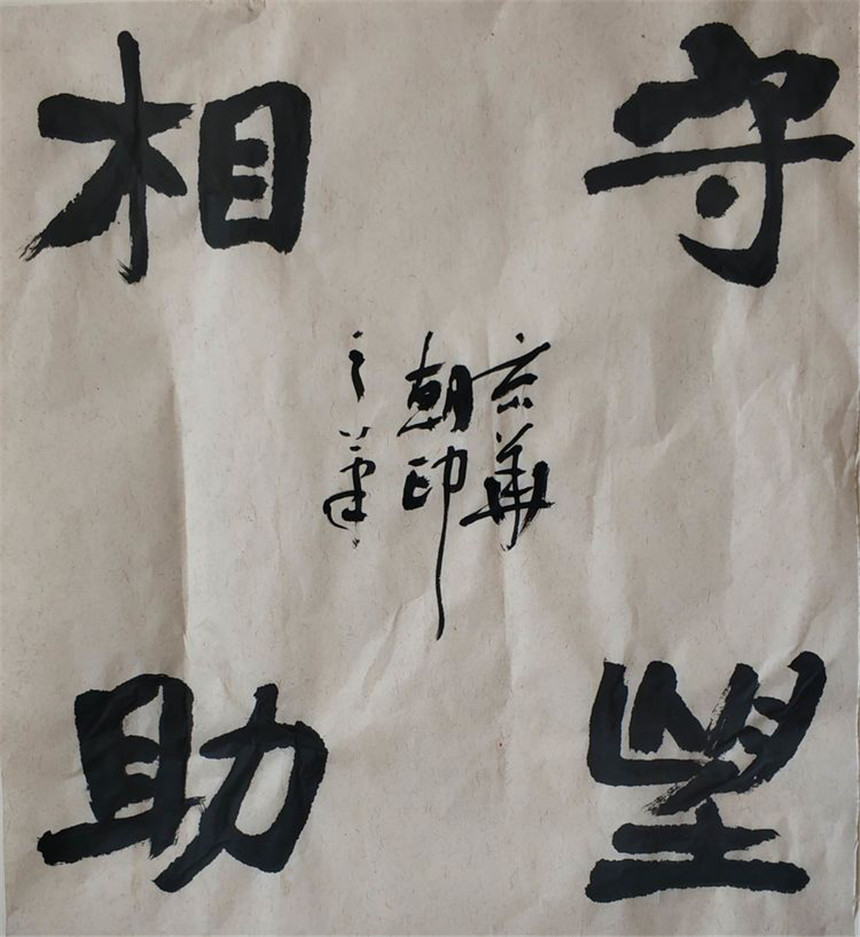 守望
相助
六華
朝印
之筆